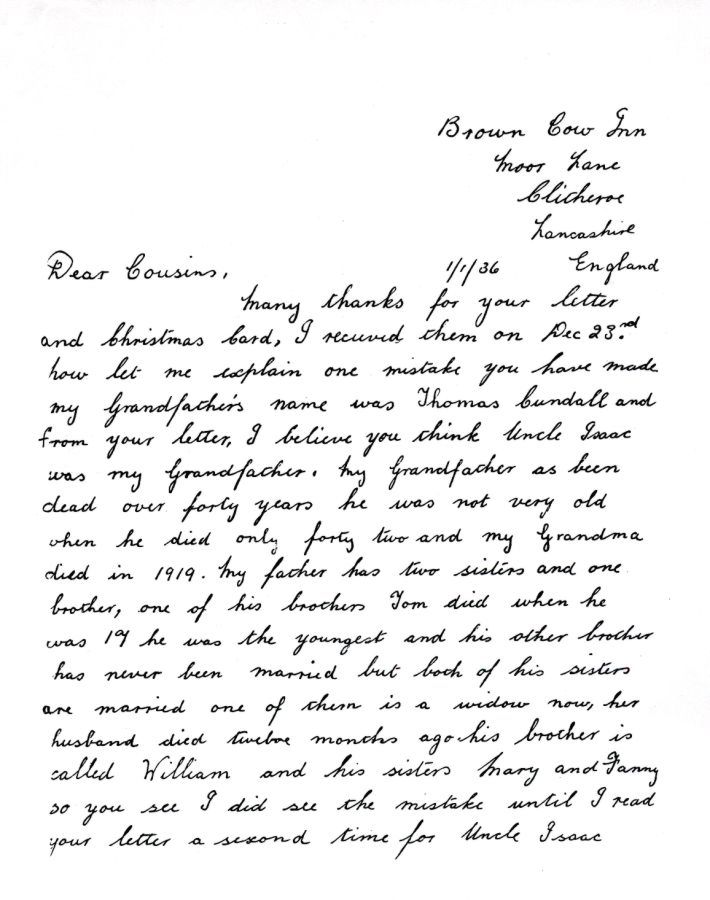 Brown Cow Inn
Moor Lane
Clitheroe
Lancashire
England
1/1/36
Dear Cousins,
Many thanks for your letter
and Christmas Card, I recieved them on Dec 23rd.
how let me explain one mistake you have made
my Grandfather's name was Thomas Cundall and
from your letter, I believe you think Uncle Isaac
was my Grandfather. My Grandfather as been
dead over forty years he was not very old
when he died only forty two and my Grandma
died in 1919. My father has two sisters and one
brother, one of his brothers Tom died when he
was 19 he was the youngest and his other brother
has never been married but both of his sisters
are married one of them is a widow now, her
husband died twelve months ago his brother is
called William and his sisters Mary and Fanny
so you see I did see the mistake until I read
your letter a second time for Uncle Isaac